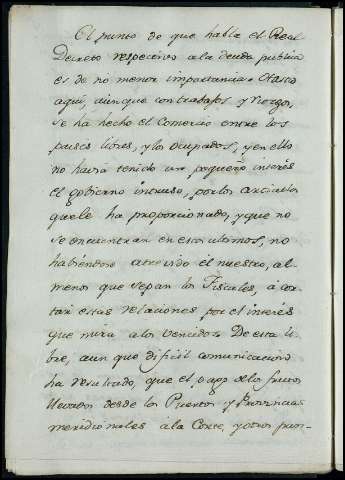 El punto de que habla el Real
Decreto respectivo a la deuda publica
es de no menor importancia. Hasta
aqui, aunque con trabajos y riesgos,
se ha hecho el Comercio entre los
paises libres, y los ocupados, y en ello
no havia tenido un pequeño interés
el gobierno intruso, por los articulos
que le ha proporcionado, y que no
se encuentran en estos ultimos, no
habiendose atrevido el nuestro, al-
menos que sepan los Fiscales, á cor-
tar estas relaciones por el interés
que mira a los vencidos. De esta li-
bre, aunque dificil comunicacion
ha resultado, que el pago de los frutos
llevados desde los Puertos y Provincias
meridionales á la Corte, y otros pun-